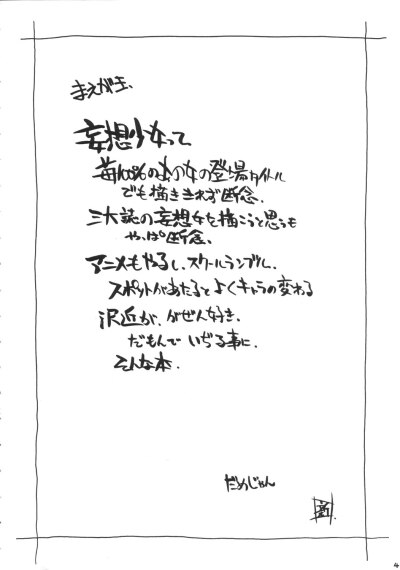 まえがき、
妄想少女って
苺100%のあの女の登場タイトル
でも描ききれず断念、
三大誌の妄想女を描こうと思うも
やっぱ断念、
アニメもやるし、スクールランブル、
スポットがあたるとよくキャラの変わる
沢近が、がぜん好き、
だもんで いぢる事に、
そんな本、
だめじゃん
4